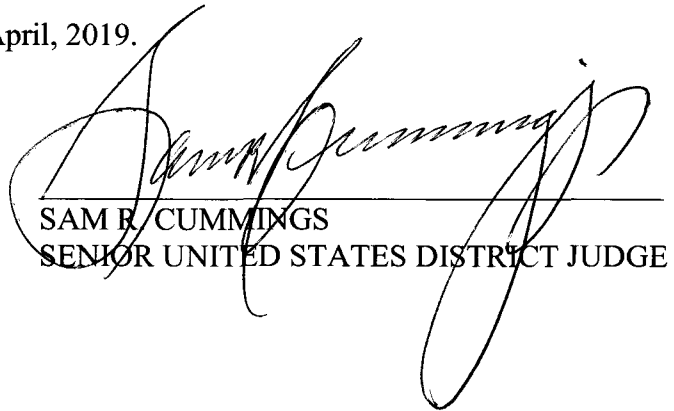 April, 2019.
Sam R Cummings
SAM R. CUMMINGS
SENIOR UNITED STATES DISTRICT JUDGE